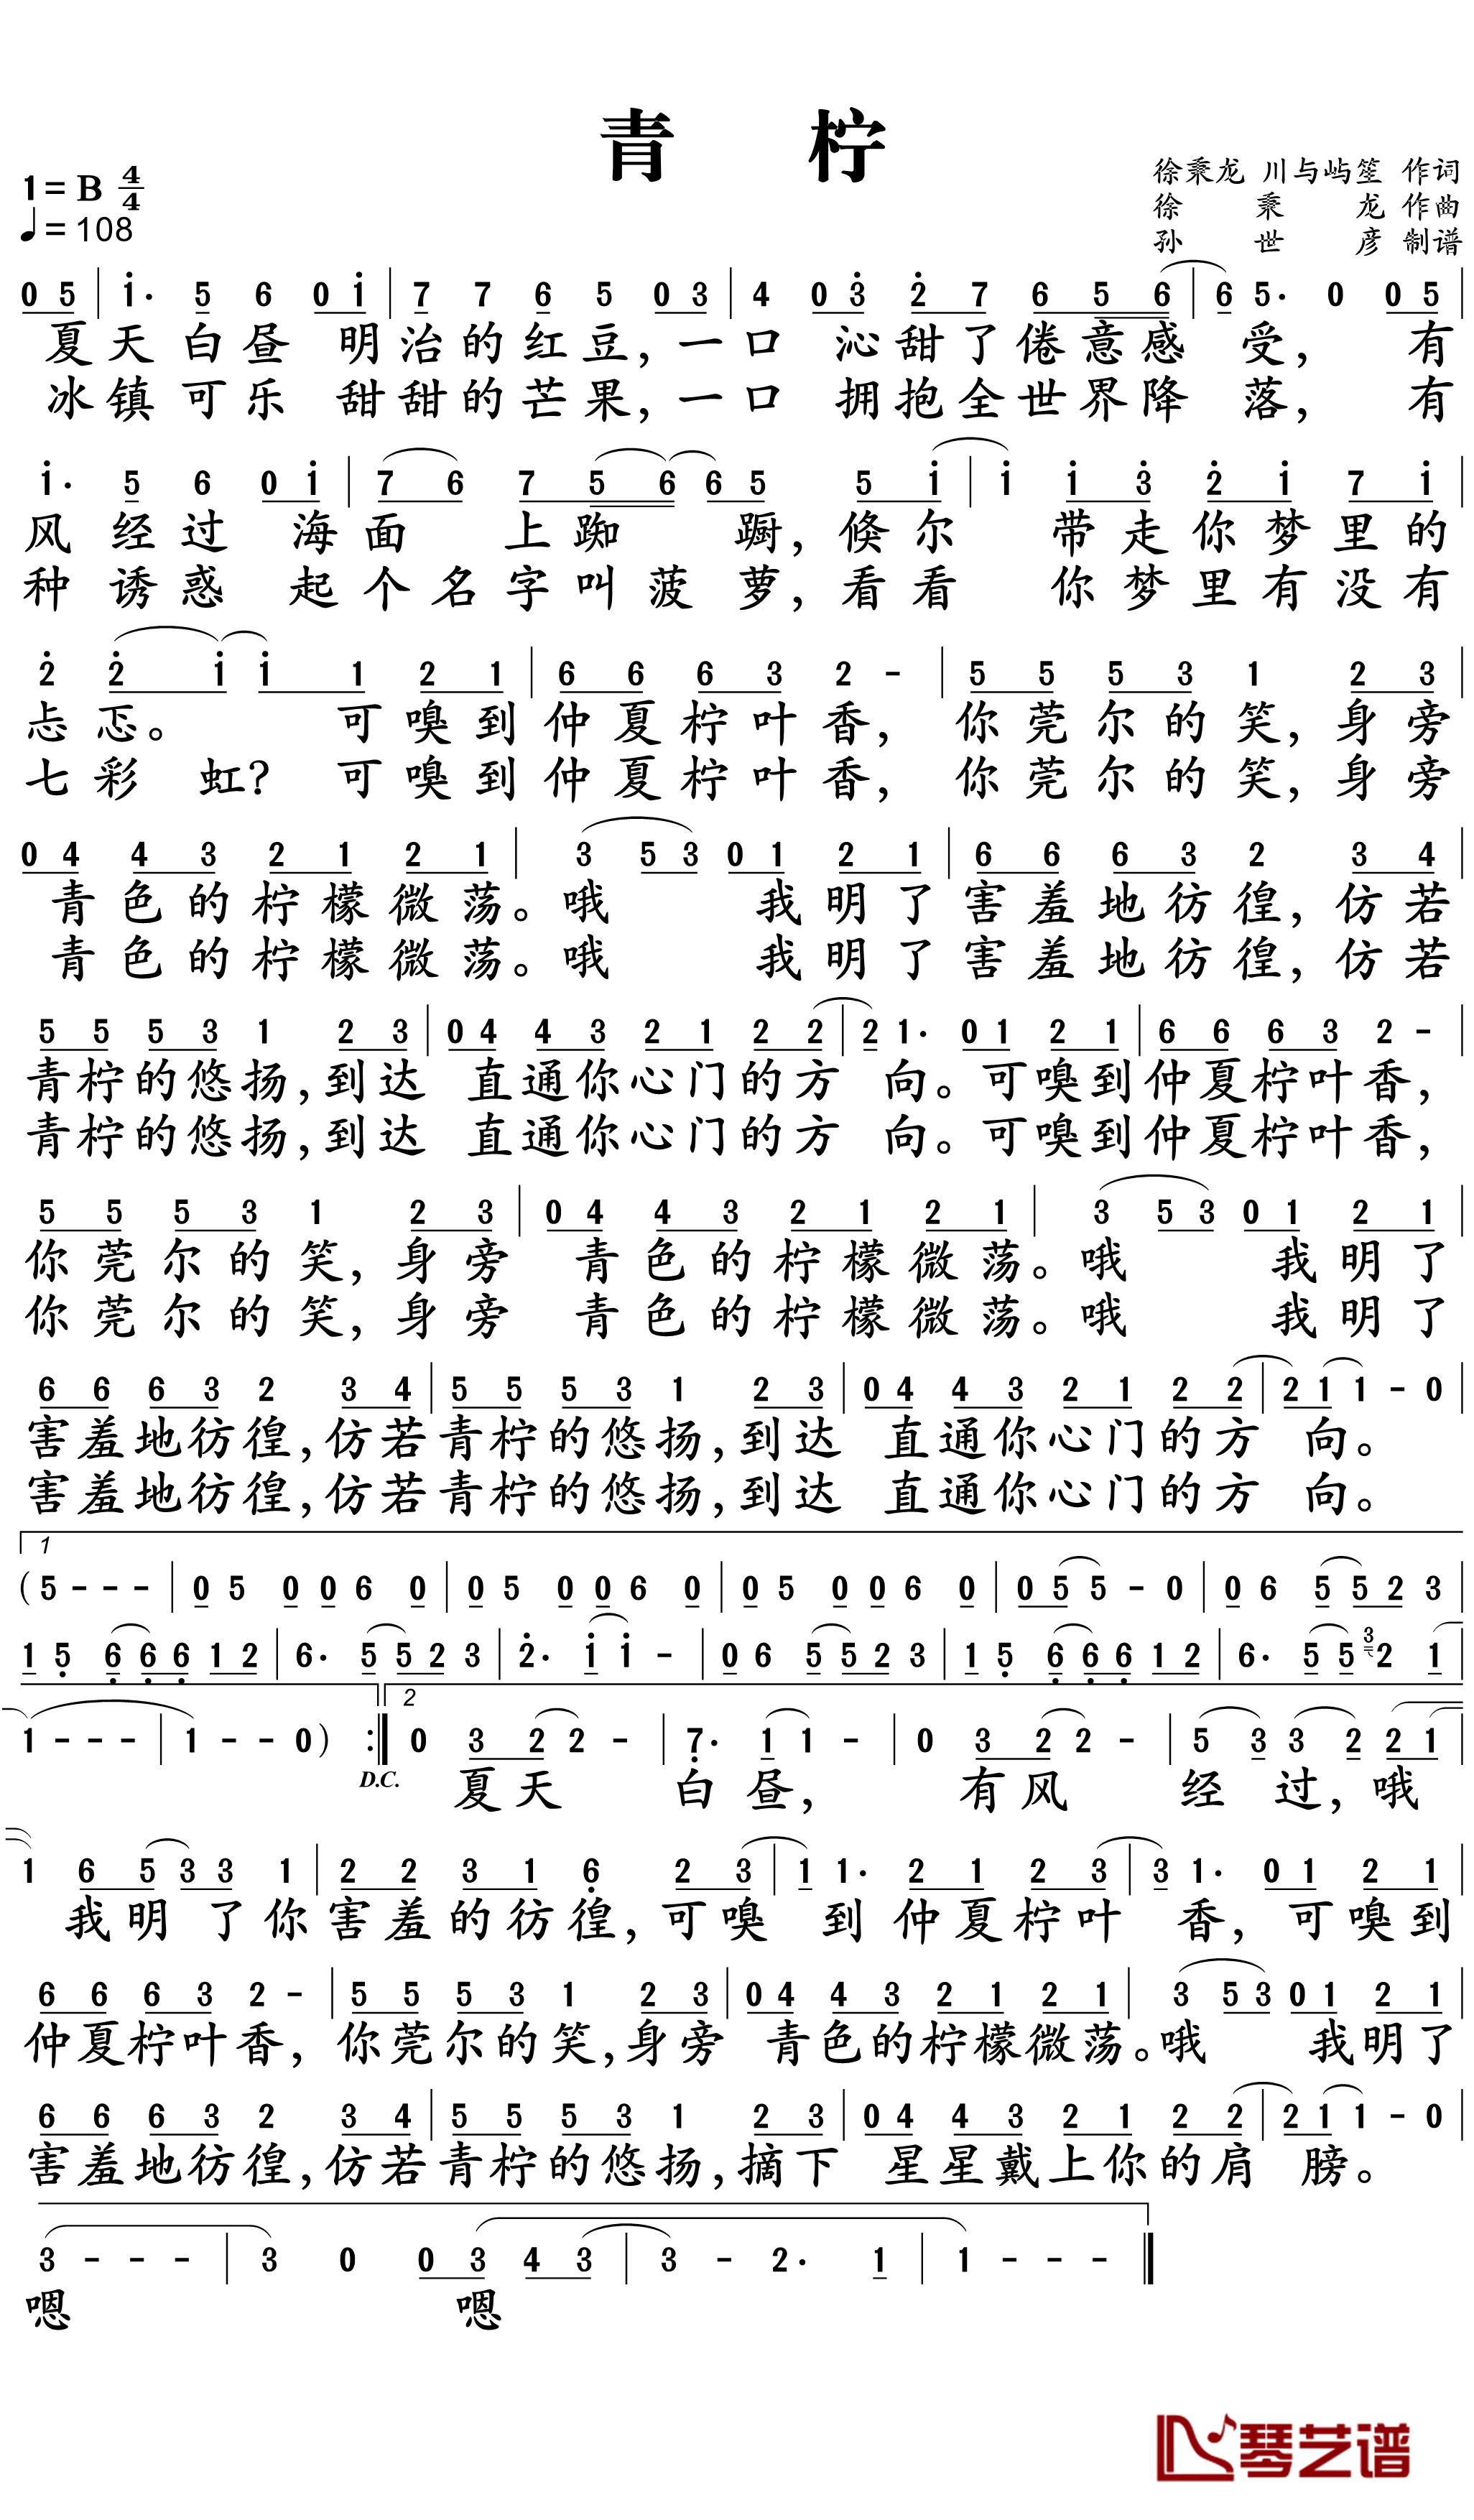 青 柠
1= B 4/4
♩= 108
徐秉龙 川与屿笙 作词
徐 秉 龙 作曲
孙 世 彦 制谱
0 5 | i· 5 6 0 i | 7 7 6 5 0 3 | 4 0 3 2 7 6 5 6 | 6 5· 0 0 5 |
夏天白昼 明治的红豆,一口 沁甜了倦意感 受, 有
冰镇可乐 甜甜的芒果,一口 拥抱全世界降 落, 有
i· 5 6 0 i | 7 6 7 5 6 6 5 5 i | i i 3 2 i 7 i |
风经过 海面 上踟 蹰,倏尔 带走你梦里的
种诱惑 起个名字叫菠 萝,看看 你梦里有没有
2 2 i i 1 2 1 | 6 6 6 3 2 - | 5 5 5 3 1 2 3 |
忐忑。 可嗅到仲夏柠叶香, 你莞尔的笑,身旁
七彩 虹? 可嗅到仲夏柠叶香, 你莞尔的笑,身旁
0 4 4 3 2 1 2 1 | 3 5 3 0 1 2 1 | 6 6 6 3 2 3 4 |
青色的柠檬微荡。哦 我明了害羞地彷徨,仿若
青色的柠檬微荡。哦 我明了害羞地彷徨,仿若
5 5 5 3 1 2 3 | 0 4 4 3 2 1 2 2 | 2 1· 0 1 2 1 | 6 6 6 3 2 - |
青柠的悠扬,到达 直通你心门的方 向。可嗅到仲夏柠叶香,
青柠的悠扬,到达 直通你心门的方 向。可嗅到仲夏柠叶香,
5 5 5 3 1 2 3 | 0 4 4 3 2 1 2 1 | 3 5 3 0 1 2 1 |
你莞尔的笑,身旁 青色的柠檬微荡。哦 我明了
你莞尔的笑,身旁 青色的柠檬微荡。哦 我明了
6 6 6 3 2 3 4 | 5 5 5 3 1 2 3 | 0 4 4 3 2 1 2 2 | 2 1 1 - 0 |
害羞地彷徨,仿若青柠的悠扬,到达 直通你心门的方 向。
害羞地彷徨,仿若青柠的悠扬,到达 直通你心门的方 向。
1
(5 - - - | 0 5 0 0 6 0 | 0 5 0 0 6 0 | 0 5 0 0 6 0 | 0 5 5 - 0 | 0 6 5 5 2 3 |
1 5 6 6 6 1 2 | 6· 5 5 2 3 | 2· i i - | 0 6 5 5 2 3 | 1 5 6 6 6 1 2 | 6· 5 5 3 2 1 |
2
1 - - - | 1 - - 0) :‖ 0 3 2 2 - | 7· 1 1 - | 0 3 2 2 - | 5 3 3 2 2 1 |
D.C. 夏天 白昼, 有风 经过,哦
1 6 5 3 3 1 | 2 2 3 1 6 2 3 | 1 1· 2 1 2 3 | 3 1· 0 1 2 1 |
我明了你害羞的彷徨,可嗅 到仲夏柠叶 香,可嗅到
6 6 6 3 2 - | 5 5 5 3 1 2 3 | 0 4 4 3 2 1 2 1 | 3 5 3 0 1 2 1 |
仲夏柠叶香, 你莞尔的笑,身旁 青色的柠檬微荡。哦 我明了
6 6 6 3 2 3 4 | 5 5 5 3 1 2 3 | 0 4 4 3 2 1 2 2 | 2 1 1 - 0 |
害羞地彷徨,仿若青柠的悠扬,摘下 星星戴上你的肩 膀。
3 - - - | 3 0 0 3 4 3 | 3 - 2· 1 | 1 - - - ‖
嗯 嗯
琴艺谱